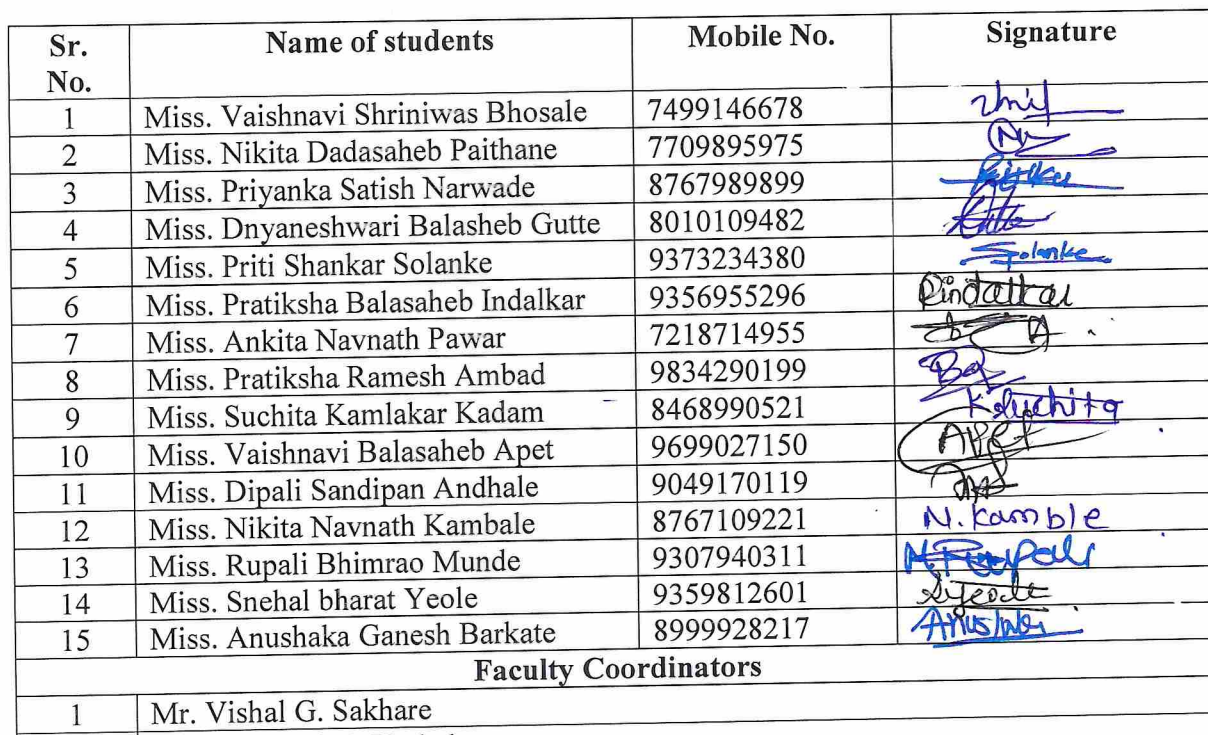 Sr. No. Name of students Mobile No. Signature
1 Miss. Vaishnavi Shriniwas Bhosale 7499146678
2 Miss. Nikita Dadasaheb Paithane 7709895975
3 Miss. Priyanka Satish Narwade 8767989899
4 Miss. Dnyaneshwari Balasheb Gutte 8010109482
5 Miss. Priti Shankar Solanke 9373234380 Solanke
6 Miss. Pratiksha Balasaheb Indalkar 9356955296
7 Miss. Ankita Navnath Pawar 7218714955
8 Miss. Pratiksha Ramesh Ambad 9834290199
9 Miss. Suchita Kamlakar Kadam 8468990521 K. Suchita
10 Miss. Vaishnavi Balasaheb Apet 9699027150 Apet
11 Miss. Dipali Sandipan Andhale 9049170119
12 Miss. Nikita Navnath Kambale 8767109221 N. Kamble
13 Miss. Rupali Bhimrao Munde 9307940311 M. Rupali
14 Miss. Snehal bharat Yeole 9359812601
15 Miss. Anushaka Ganesh Barkate 8999928217
Faculty Coordinators
1 Mr. Vishal G. Sakhare